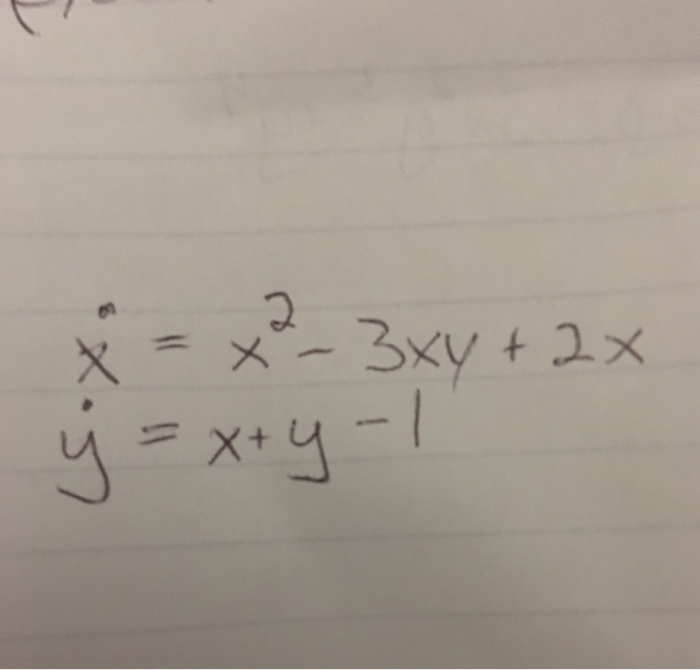 ẋ = x² - 3xy + 2x
ẏ = x + y - 1